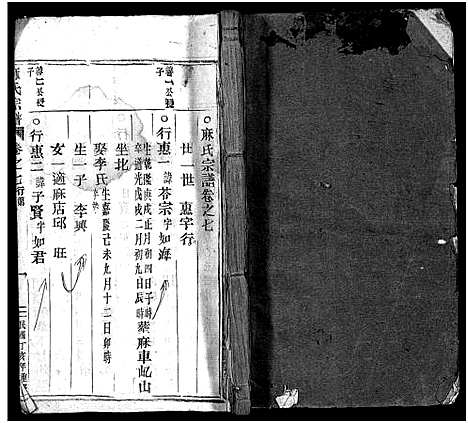 麻氏宗譜卷之七
廿一世 惠字行
善一公授子
行惠一 諱荅宗 字如海
生乾隆庚戌正月初四日子時
卒道光戊戌二月初九日辰時 葬麻車屺山
坐北
娶李氏 生嘉慶己未九月十二日卯時
生一子 李興
女一 適麻店邱 旺
善一公授子
行惠二 諱子賢 字如君
氏宗譜 卷之七 行第 一